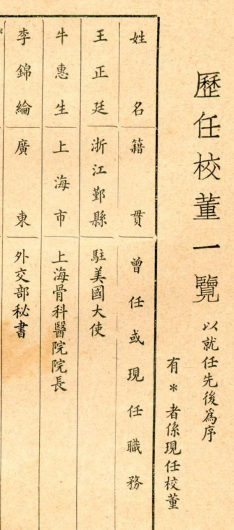 歷任校董一覽 以就任先後為序
有*者係現任校董
姓名 籍貫 曾任或現任職務
王正廷 浙江鄞縣 駐美國大使
牛惠生 上海市 上海骨科醫院院長
李錦綸 廣東 外交部秘書